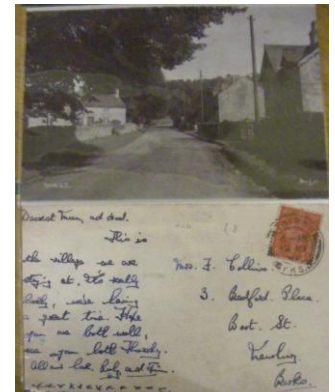 Dearest Mum, and dad.
This is
the village we are
staying at. It's really
lovely, we're having
a great time. Hope
you are both well,
see you both Thursday.
All our love,
Mrs. F. Collins
3. Bedford Place.
Boot. St.
Newbury.
Berks.